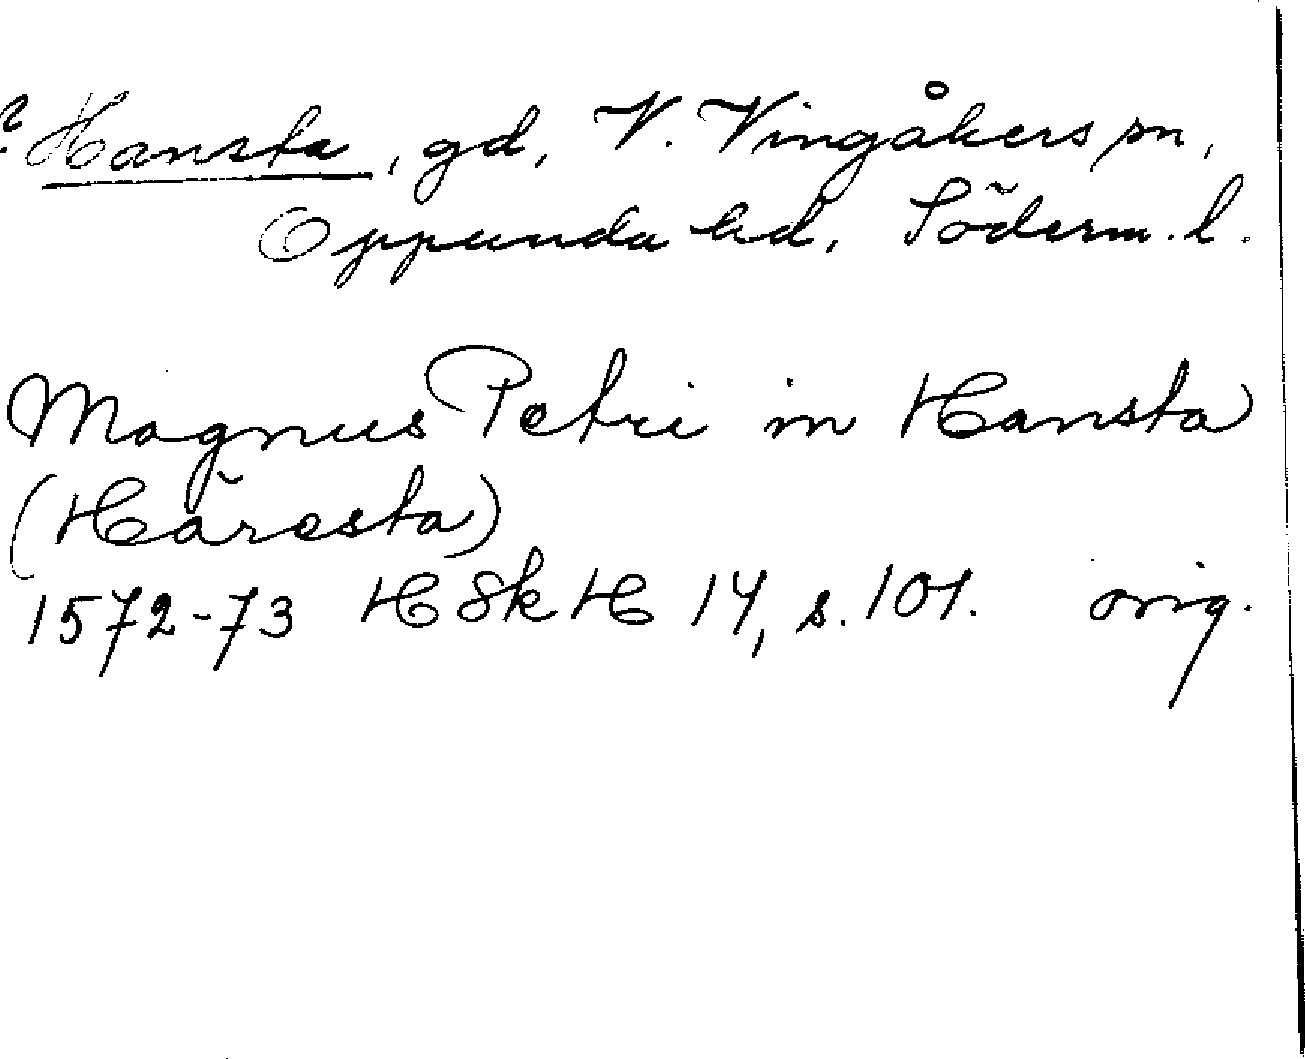 ? Hansta, gd, V. Vingåkers sn,
Oppunda hd, Söderm. l.
Magnus Petri in Hansta
(Häresta)
1572-73 HSkH 14, s. 101. orig.